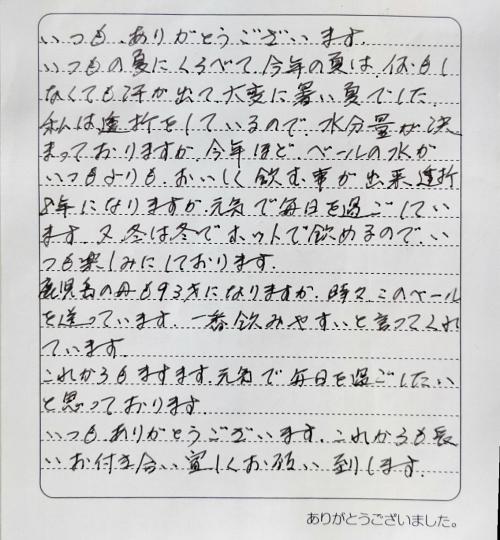 いつも、ありがとうございます。
いつもの夏にくらべて、今年の夏は、何もし
なくても汗が出て、大変に暑い夏でした。
私は透析をしているので、水分量が決
まっておりますが、今年ほど、ベールの水が
いつもよりも、おいしく飲む事が出来、透析
8年になりますが、元気で毎日を過ごしてい
ます。又、冬は冬で、ホットで飲めるので、い
つも楽しみにしております。
鹿児島の母も93才になりますが、時々、このベール
を送っています。一番飲みやすいと言ってくれ
ています。
これからもますます、元気で毎日を過ごしたい
と思っております。
いつも、ありがとうございます。これからも長
いお付き合い宜しくお願い致します。
ありがとうございました。